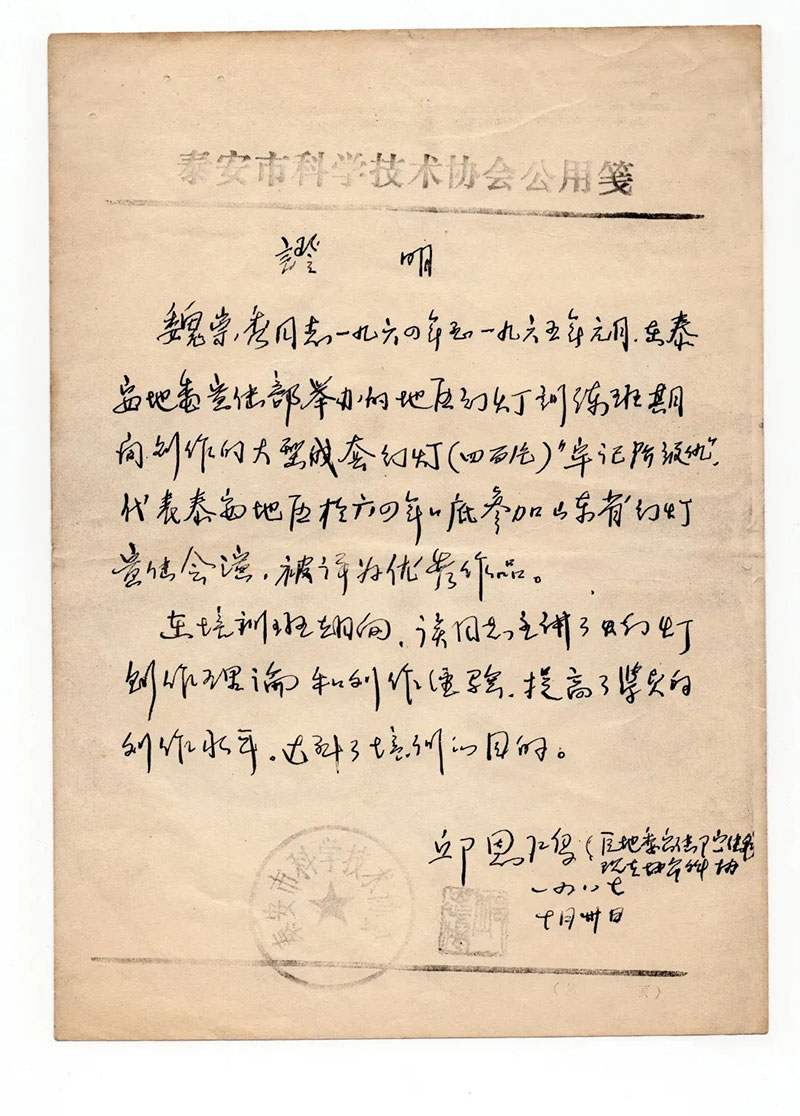 泰安市科学技术协会公用笺
證 明
魏崇秀同志一九六四年至一九六五年元月.在泰
安地委宣传部举办的地区幻灯训练班期
间.创作的大型成套幻灯(四百片)"牢记阶级仇",
代表泰安地区于六四年底参加山东省幻灯
宣传会演，被评为优秀作品。
在培训班期间，该同志主讲了幻灯
创作理论和创作经验，提高了学员的
创作水平。达到了培训的目的。
邱恩
一九八七
十月卅日
泰安市科学技术协会